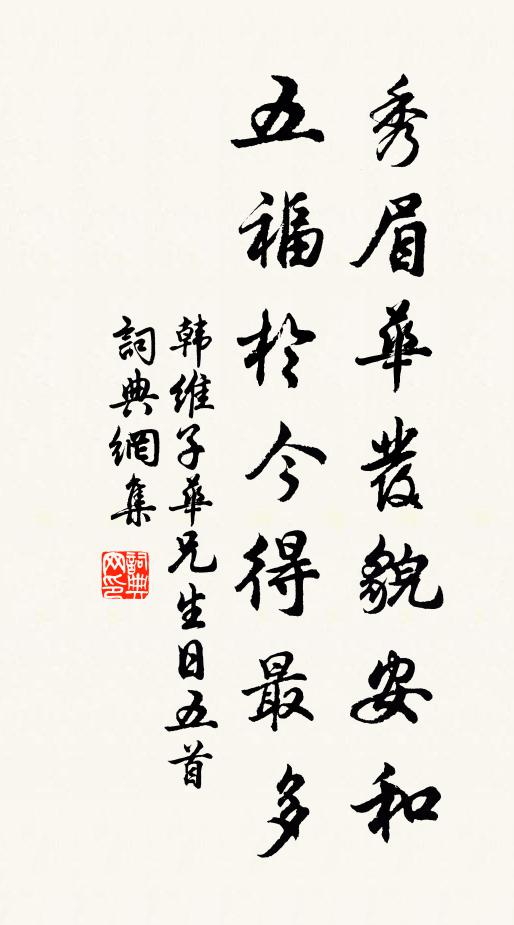 秀眉華發貌安和
五福於今得最多
韩維子華兄生日五首
詞典網集
詞典网印